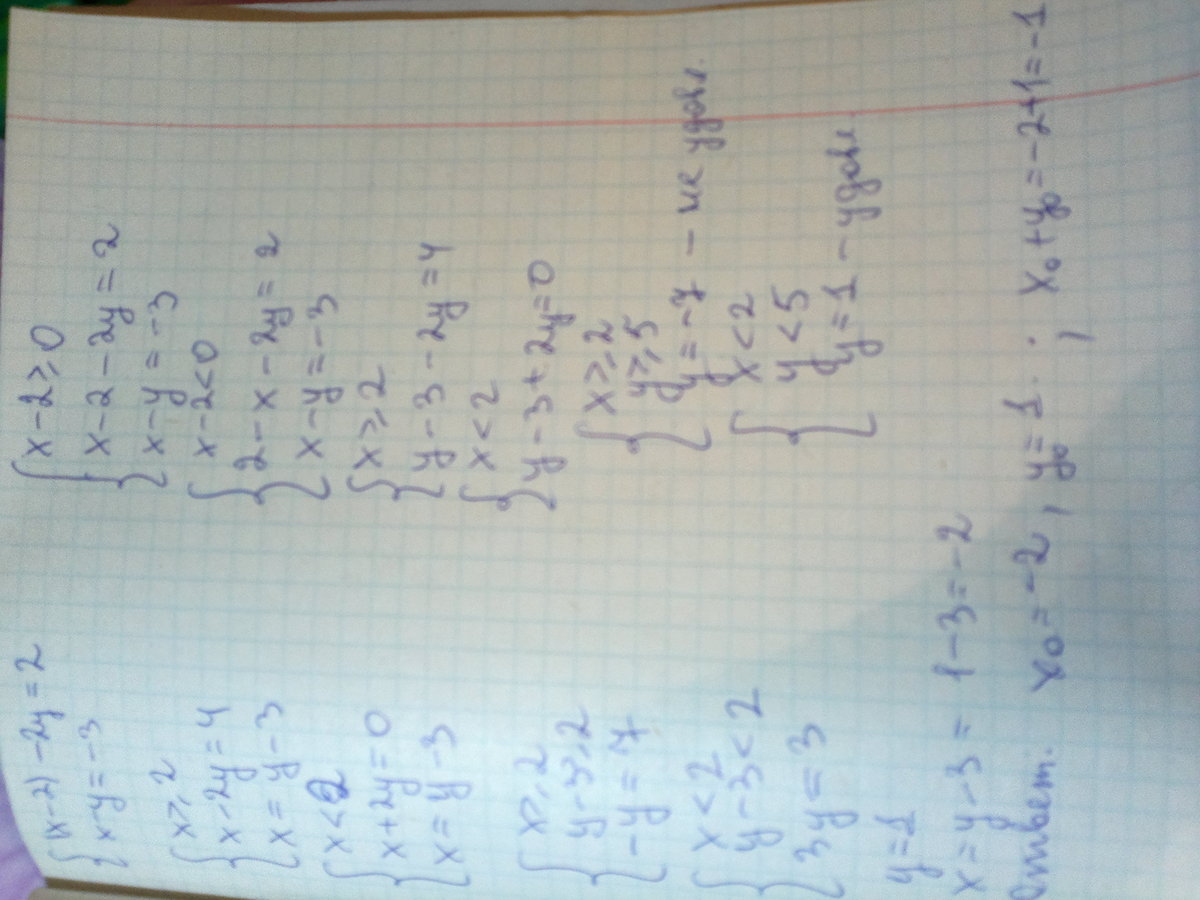 |x-2|-2y=2
x-y=-3
x-2≥0
x-2-2y=2
x-y=-3
x-2<0
2-x-2y=2
x-y=-3
x≥2
x-2y=4
x=y-3
x<2
x+2y=0
x=y-3
x≥2
y-3-2y=4
x<2
y-3+2y=0
x≥2
y-3≥2
-y=7
x<2
y-3<2
3y=3
x≥2
y≥5
y=-7 - не удовл.
x<2
y<5
y=1 - удовл.
y=1
x=y-3= 1-3=-2
Ответ. x₀=-2, y₀=1. ; x₀+y₀=-2+1=-1